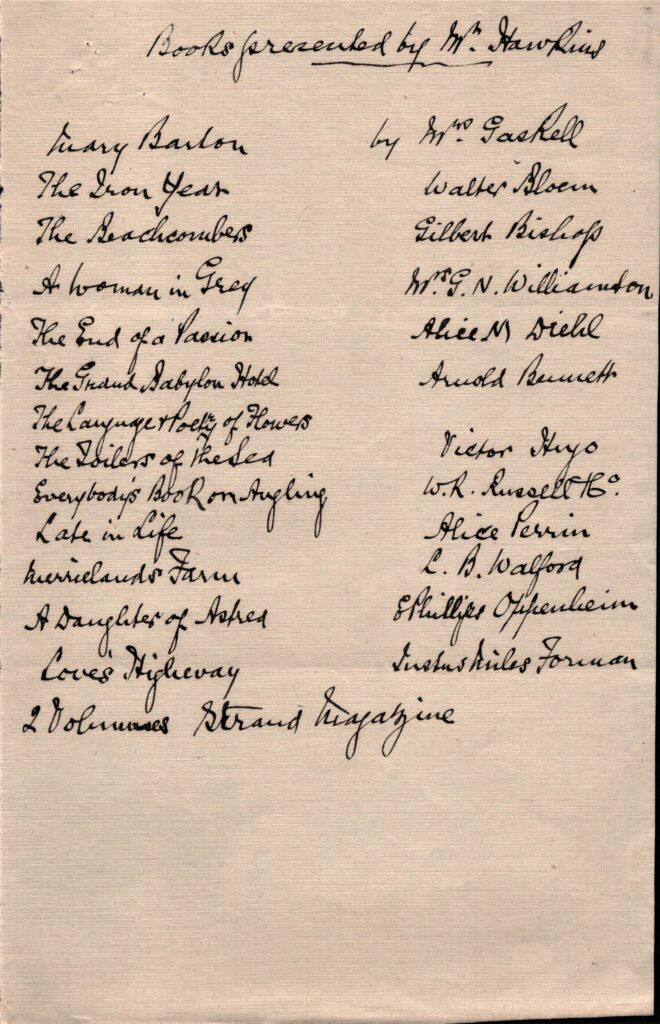 Books presented by Mr. Hawkins
Mary Barton by Mrs. Gaskell
The Iron Year Walter Bloem
The Beachcombers Gilbert Bishop
A Woman in Grey Mrs. G. N. Williamson
The End of a Passion Alice M Diehl
The Grand Babylon Hotel Arnold Bennett
The Language & Poetry of Flowers
The Toilers of the Sea Victor Hugo
Everybody's Book on Angling W. R. Russell
Late in Life Alice Perrin
Merrielands Farm L. B. Walford
A Daughter of Astrea E Phillips Oppenheim
Love's Highway Justus Miles Forman
2 Volumes Strand Magazine